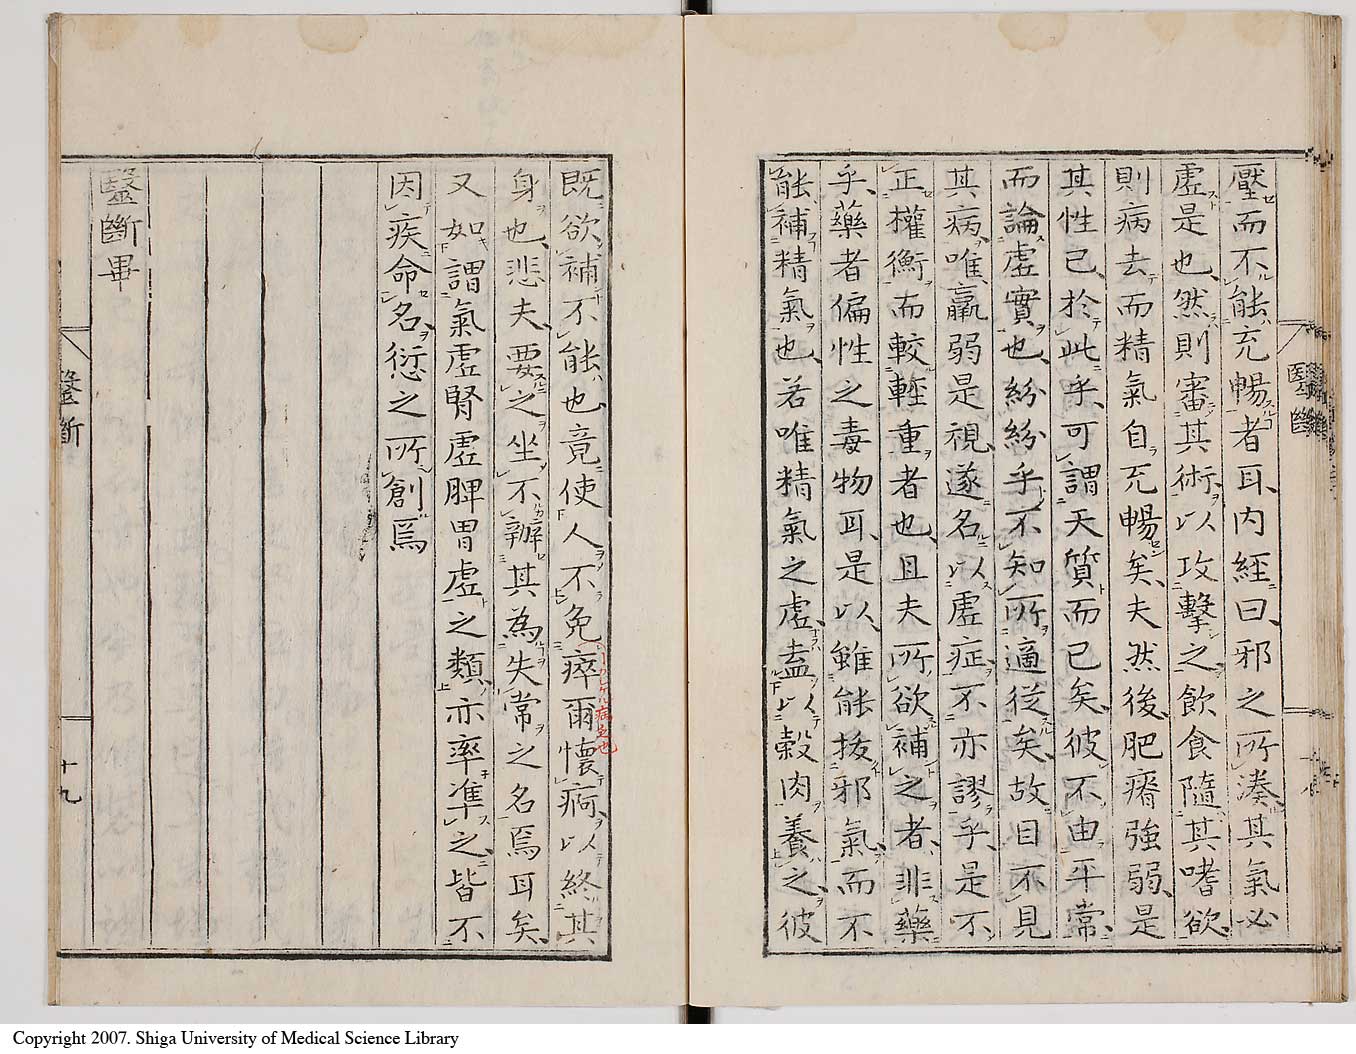 壓而不能充暢者耳内經曰邪之所湊其氣必
虛是也然則審其術以攻擊之飲食隨其嗜欲
則病去而精氣自充暢矣夫然後肥瘠強弱是
其性已於此乎可謂天質而已矣彼不由平常
而論虛實也紛紛乎不知所適從矣故目不見
其病唯羸弱是視遂名以虛症不亦謬乎是不
正權衡而較輕重者也且夫所欲補之者非藥
乎藥者偏性之毒物耳是以雖能拔邪氣而不
能補精氣也若唯精氣之虛盍以穀肉養之彼
醫斷
既欲補不能也竟使人不免瘁爾懷痾以終其
身也悲夫要之坐不辨其為失常之名焉耳矣
又如謂氣虛腎虛脾胃虛之類亦率準之皆不
因疾命名愆之所創焉
醫斷畢
醫斷
十九
Copyright 2007. Shiga University of Medical Science Library